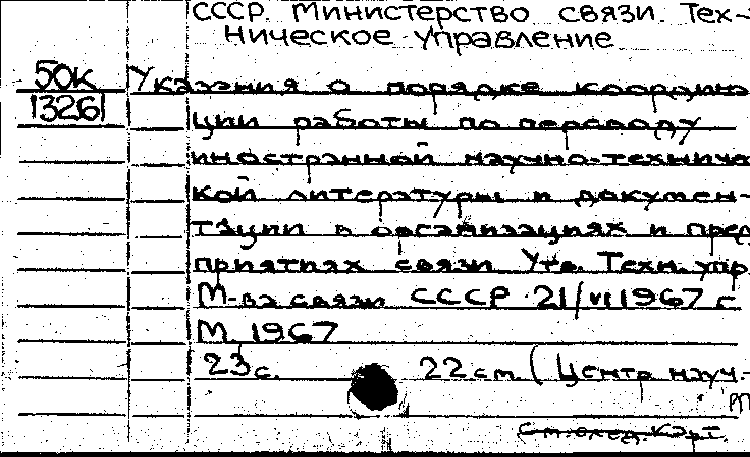 СССР. Министерство связи. Тех-
ническое управление
50к Указания о порядке координа
13261 ции работы по переводу
иностранной научно-техничес
кой литературы и докумен-
тации в организациях и пред
приятиях связи Утв. Техн. упр.
М-ва связи СССР 21/VI 1967 г.
М. 1967
23с. 22см. (Центр науч.-
См. след. карт.